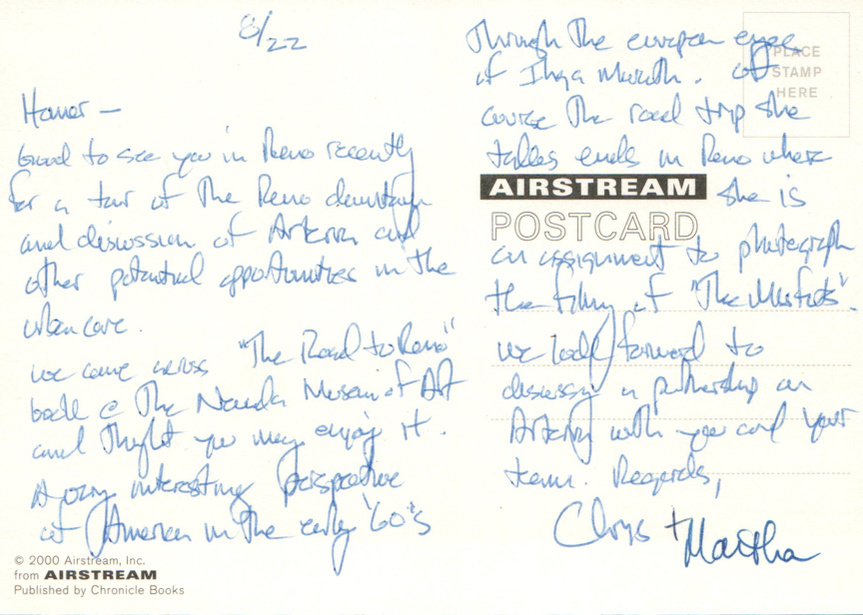 8/22
Homer —
Good to see you in Reno recently
for a tour of the Reno downtown
and discussion of Artown and
other potential opportunities in the
urban core.
We came across "The Road to Reno"
back @ the Nevada Museum of Art
and thought you may enjoy it.
A very interesting perspective
of America in the early '60's
through the european eyes
of Inga Morath. Of
course the road trip she
takes ends in Reno where
she is
on assignment to photograph
the filming of "The Misfits".
We look forward to
discussing a partnership on
with you and your
team. Regards,
Chrys + Martha
PLACE
STAMP
HERE
AIRSTREAM
POSTCARD
© 2000 Airstream, Inc.
from AIRSTREAM
Published by Chronicle Books